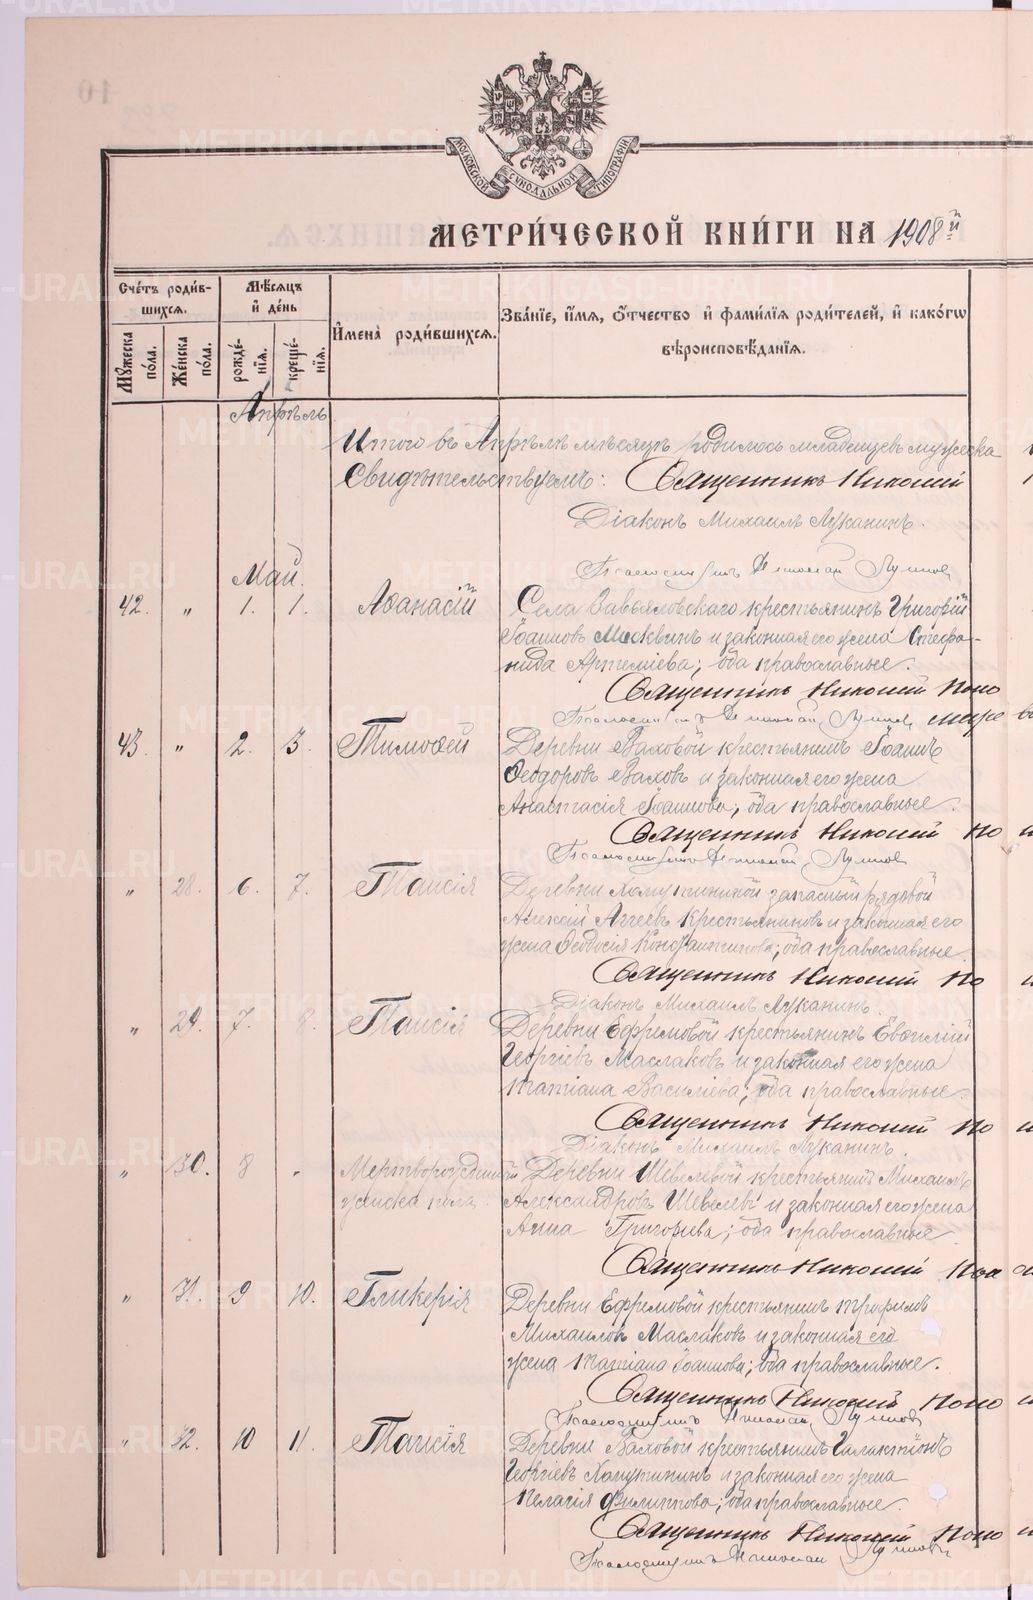 МОСКОВСКОЙ СѴНОДАЛЬНОЙ ТИПОГРАФІИ
МЕТРИ́ЧЕСКОЙ КНИ́ГИ НА 1908й
Сче́тъ роди́вшихсѧ.
Мꙋ́жеска по́ла.
Же́нска по́ла.
Мѣ́сѧцъ и҆ де́нь
рожде́нїѧ.
креще́нїѧ.
И҆мена̀ роди́вшихсѧ.
Зва́нїе, и҆́мѧ, ѻ҆́тчество и҆ фами́лїѧ роди́телей, и҆ како́гѡ
вѣроисповѣ́данїѧ.
Апрѣль
Итого въ Апрѣлѣ мѣсяцѣ родилось младенцевъ мужеска
Свидѣтельствуемъ: Священникъ Николай
Діаконъ Михаилъ Лужанинъ.
Май.
Псаломщикъ
42. „ 1. 1. Аѳанасій Села Завьяловскаго крестьянинъ Григорій
Іоанновъ Москвинъ и законная его жена Стефа-
нида Артеміева; оба православные.
Священникъ Николай Попо
Псаломщикъ
43. „ 2. 3. Тимоѳей Деревни Валовой крестьянинъ Іоаннъ
Ѳеодоровъ Валовъ и законная его жена
Анастасія Іоаннова; оба православные.
Священникъ Николай По
Псаломщикъ
„ 28. 6. 7. Таисія Деревни запасный рядовой
Алексій Аггеевъ Крестьяниновъ и законная его
жена Ѳеодосія Константинова; оба православные.
Священникъ Николай По
Діаконъ Михаилъ Лужанинъ.
„ 29. 7. 8. Таисія Деревни Ефремовой крестьянинъ Евѳимій
Георгіевъ Маслаковъ и законная его жена
Татіана Василіева; оба православные.
Священникъ Николай По
Діаконъ Михаилъ Лужанинъ.
„ 30. 8 „ Мертворожденный Деревни Шевелевой крестьянинъ Михаилъ
женска пола. Александровъ Шевелевъ и законная его жена
Анна Григорьева; оба православные
Священникъ Николай Поп
„ 31. 9 10. Гликерія Деревни Ефремовой крестьянинъ Трофимъ
Михаиловъ Маслаковъ и законная его
жена Татіана Іоаннова; оба православные.
Священникъ Николай Попо
Псаломщикъ
„ 32. 10 11. Таисія Деревни Валовой крестьянинъ Галактіонъ
Георгіевъ и законная его жена
Пелагія Филиппова; оба православные.
Священникъ Николай Попо
Псаломщикъ
METRIKI.GASO-URAL.RU